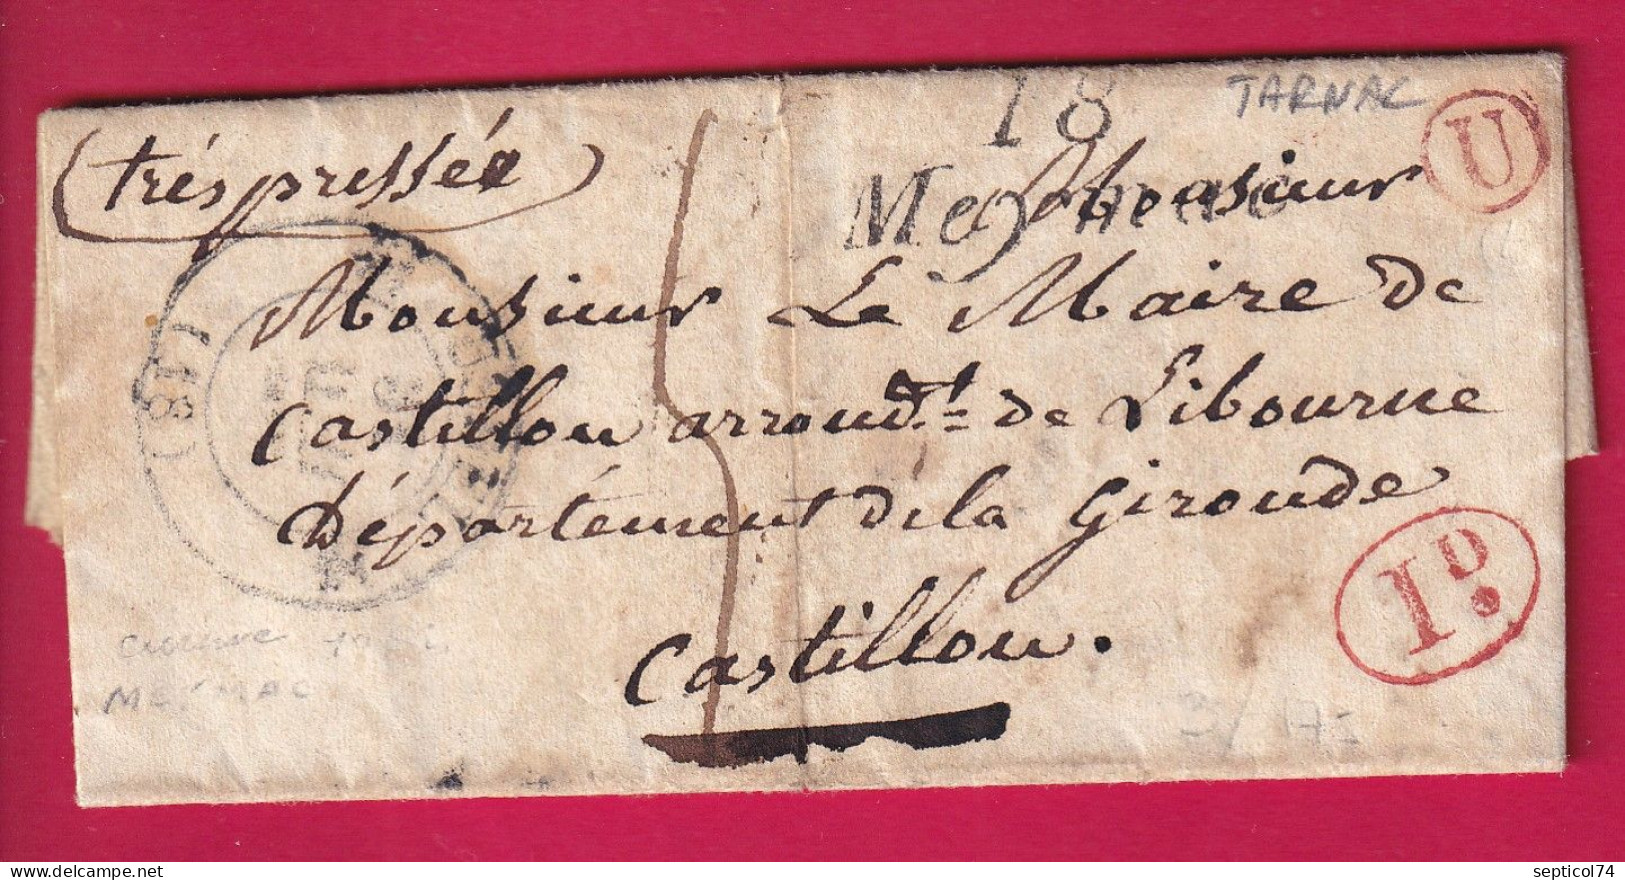 18
TARNAC
U
(très pressée)
Meymac
Monsieur
Monsieur Le Maire de
Castillon arrond.t de Libourne
Département de la Gironde
Castillon.
1D.
(18)
MEYMAC
septicol74